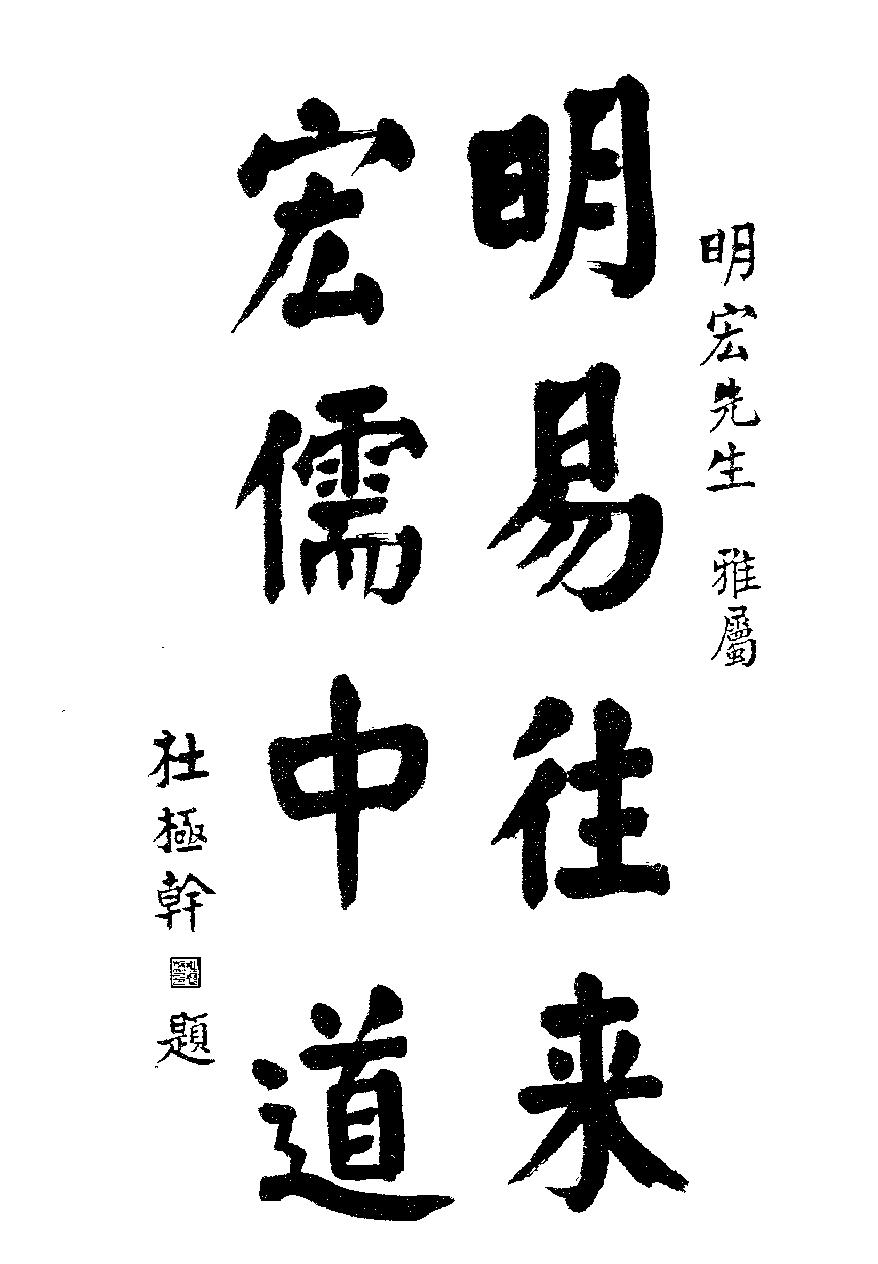 明宏先生 雅屬
明易往来
宏儒中道
杜極幹 題